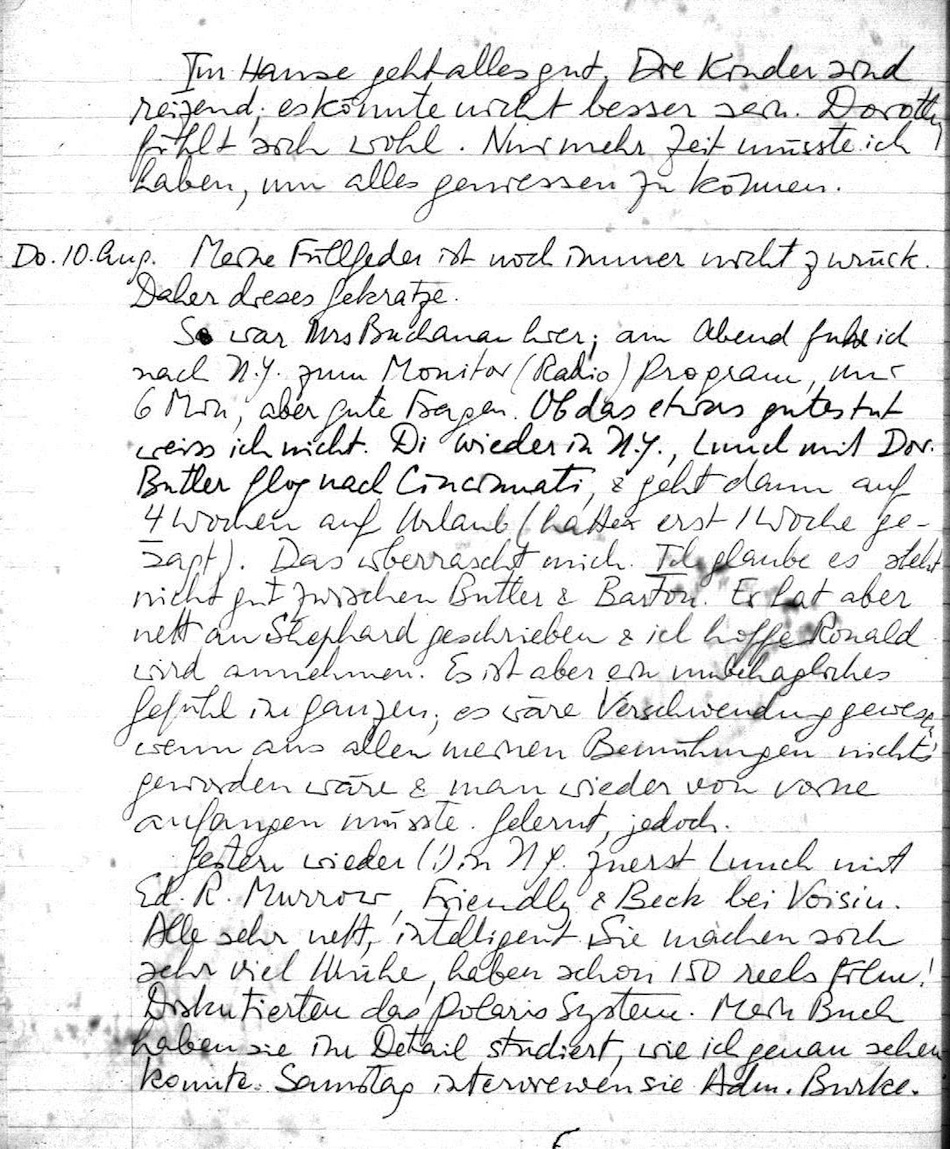 Im Hause geht alles gut. Die Kinder sind
reizend; es könnte nicht besser sein. Dorothy
fühlt sich wohl. Nur mehr Zeit müsste ich
haben, um alles geniessen zu können.
Do. 10. Aug. Meine Füllfeder ist noch immer nicht zurück.
Daher dieses Gekratze.
So war Mrs Buchanan hier; am Abend fuhr ich
nach N.Y. zum Monitor (Radio) Program, nur
6 Min, aber gute Fragen. Ob das etwas gutes tut
weiss ich nicht. Di wieder in N.Y., Lunch mit Dor.
Butler flog nach Cincinnati, & geht dann auf
4 Wochen auf Urlaub (hatte erst 1 Woche ge-
sagt). Das überrascht mich. Ich glaube es steht
nicht gut zwischen Butler & Barton. Er hat aber
nett an Shephard geschrieben & ich hoffe Ronald
wird annehmen. Es ist aber ein unbehagliches
Gefühl im ganzen; es wäre Verschwendung gewesen
wenn aus allen meinen Bemühungen nichts
geworden wäre & man wieder von vorne
anfangen müsste. Gelernt, jedoch.
Gestern wieder (!) in N.Y. zuerst Lunch mit
Ed. R. Murrow, Friendly & Beck bei Voisin.
Alle sehr nett, intelligent. Sie machen sich
sehr viel Mühe, haben schon 150 reels Film!
Diskutierten das Polaris System. Mein Buch
haben sie im Detail studiert, wie ich genau sehen
konnte. Samstag interviewen sie Adm. Burke.